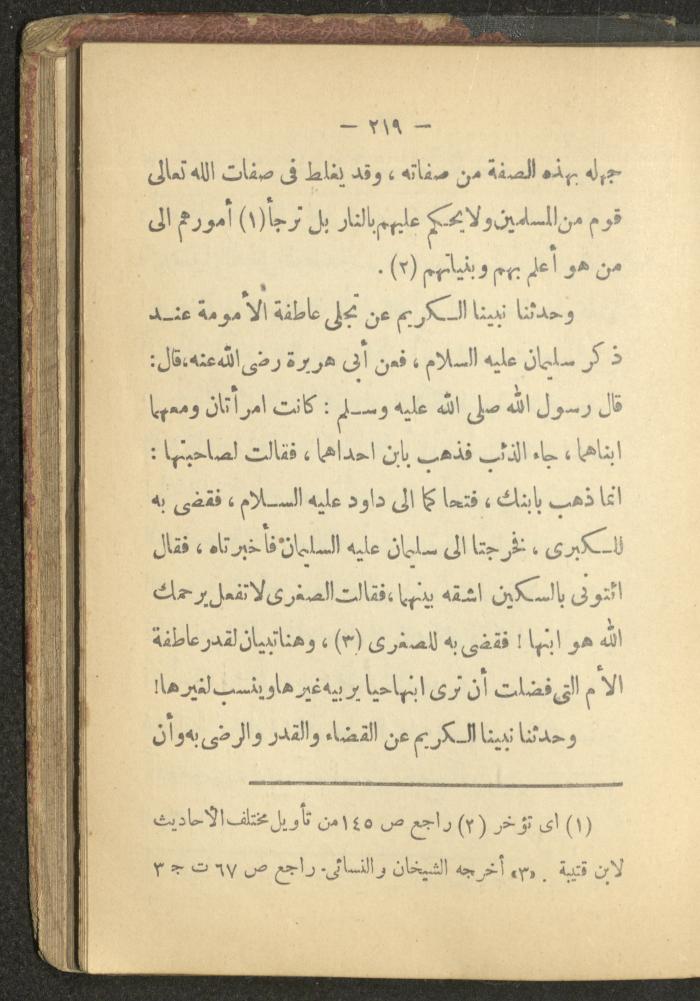 — ٢١٩ —
جهله بهذه الصفة من صفاته ، وقد يغلط فى صفات الله تعالى
قوم من المسلمين ولا يحكم عليهم بالنار بل ترجأ (١) أمورهم الى
من هو أعلم بهم وبنياتهم (٢) .
وحدثنا نبينا الكريم عن تجلى عاطفة الأمومة عند
ذكر سليمان عليه السلام ، فعن أبى هريرة رضى الله عنه ، قال :
قال رسول الله صلى الله عليه وسلم : كانت امرأتان ومعهما
ابناهما ، جاء الذئب فذهب بابن احداهما ، فقالت لصاحبتها :
انما ذهب بابنك ، فتحاكما الى داود عليه السلام ، فقضى به
للكبرى ، فخرجتا الى سليمان عليه السليمان فأخبرتاه ، فقال
ائتونى بالسكين اشقه بينهما ، فقالت الصغرى لا تفعل يرحمك
الله هو ابنها ! فقضى به للصغرى (٣) ، وهنا تبيان لقدر عاطفة
الأم التى فضلت أن ترى ابنها حيا يربيه غيرها وينسب لغيرها !
وحدثنا نبينا الكريم عن القضاء والقدر والرضى به وأن
(١) اى تؤخر (٢) راجع ص ١٤٥ من تأويل مختلف الأحاديث
لابن قتيبة . «٣» أخرجه الشيخان والنسائى . راجع ص ٦٧ ت ج ٣